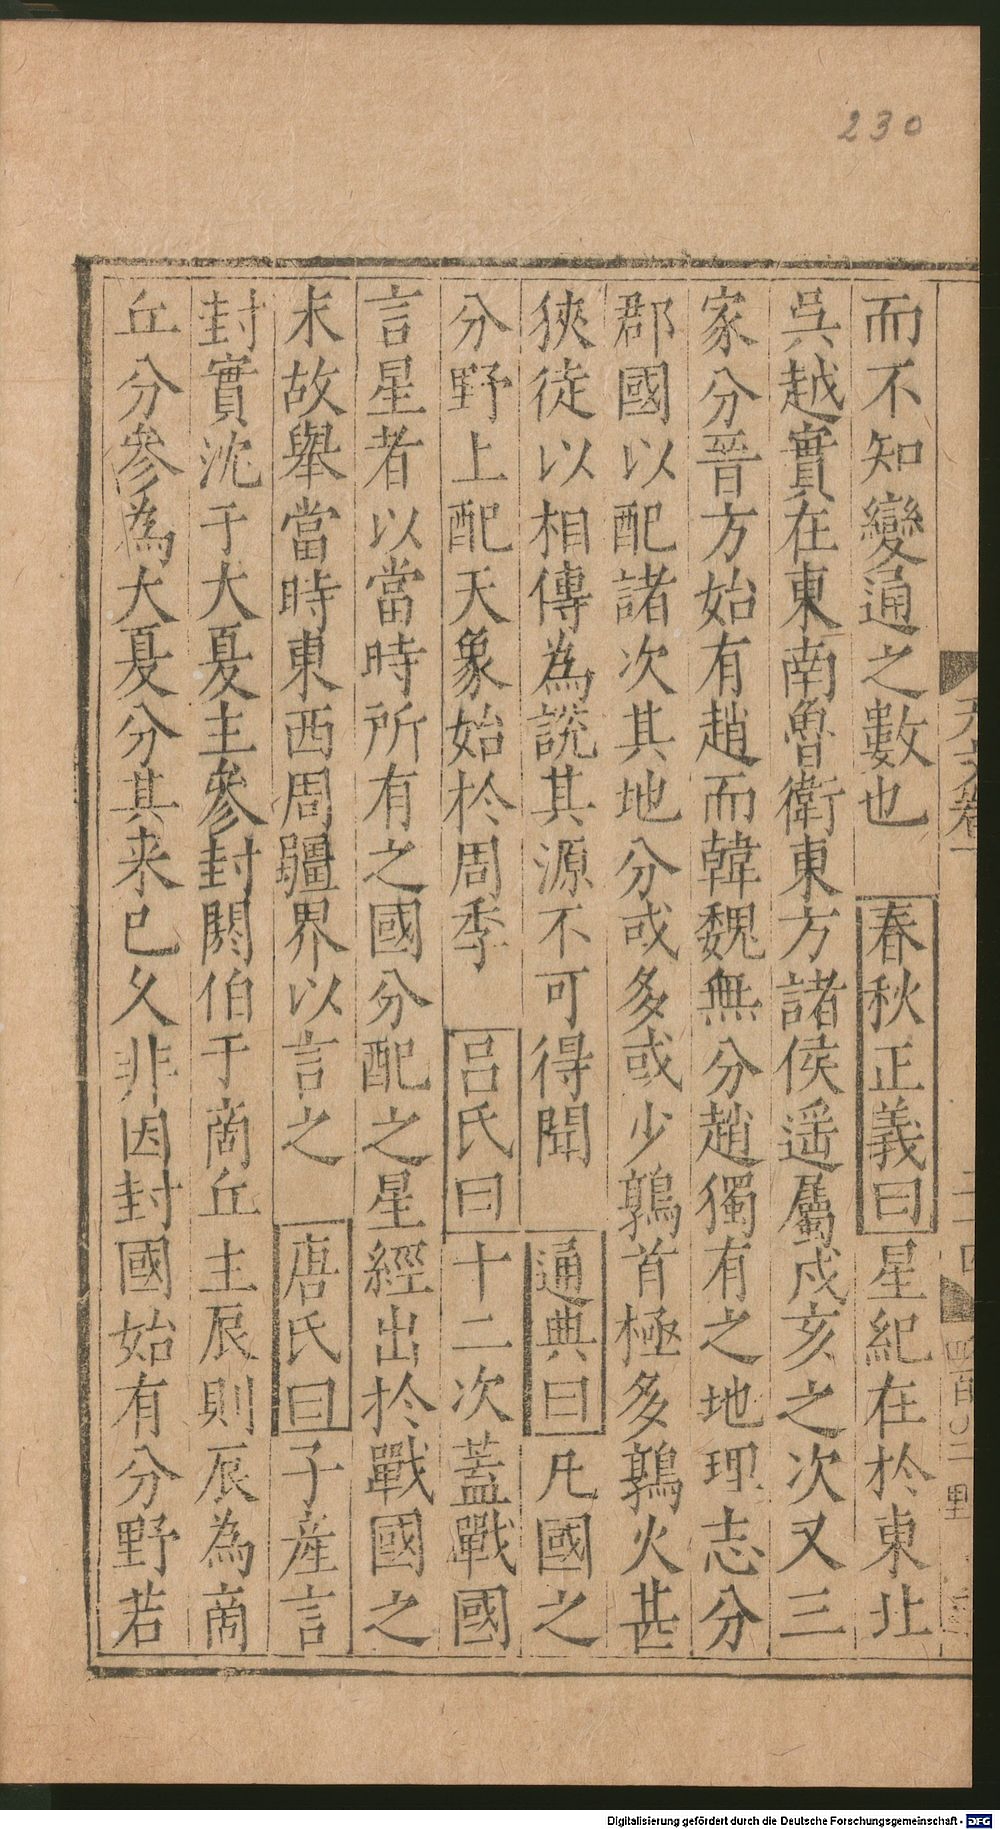 230
而不知變通之數也 春秋正義曰星紀在於東北
吳越實在東南魯衛東方諸侯遥屬戍亥之次又三
家分晉方始有趙而韓魏無分趙獨有之地理志分
郡國以配諸次其地分或多或少鶉首極多鶉火甚
狹徒以相傳為說其源不可得聞 通典曰凡國之
分野上配天象始於周季 吕氏曰十二次蓋戰國
言星者以當時所有之國分配之星經出於戰國之
末故舉當時東西周疆界以言之 唐氏曰子產言
封實沈于大夏主參封閼伯于商丘主辰則辰為商
丘分參為大夏分其来已久非因封國始有分野若
天文卷一
二十四
四百〇二
Digitalisierung gefördert durch die Deutsche Forschungsgemeinschaft - DFG